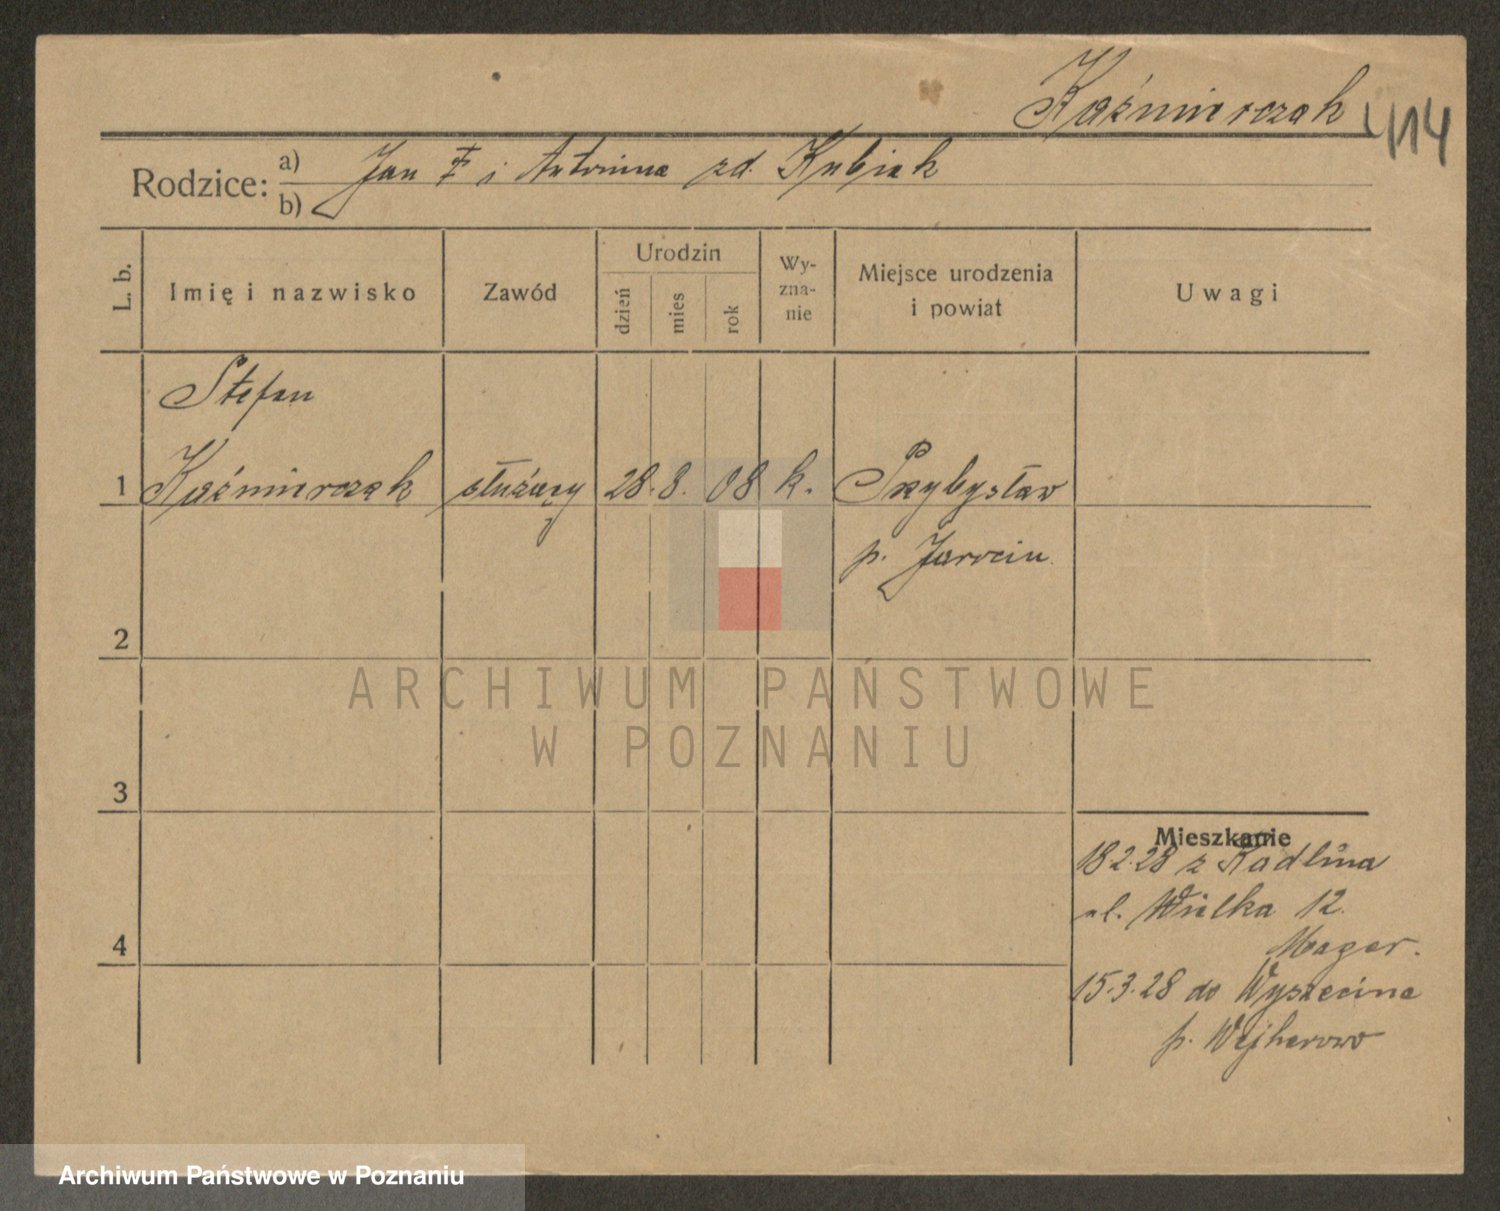 Kaźmierczak 414
Rodzice: a) Jan ‡ i Antonina zd. Kubiak
b)
L. b.
Imię i nazwisko
Zawód
Urodzin
dzień
mies
rok
Wy-
zna-
nie
Miejsce urodzenia
i powiat
Uwagi
Stefan
1 Kaźmierczak służący 28. 8. 08 k. Przybysław
p. Jarocin
2
ARCHIWUM PAŃSTWOWE
W POZNANIU
3
Mieszkanie
18.2.28 z Radlina
ul. Wielka 12.
Mager.
4
15.3.28 do Wyszecina
p. Wejherowo
Archiwum Państwowe w Poznaniu